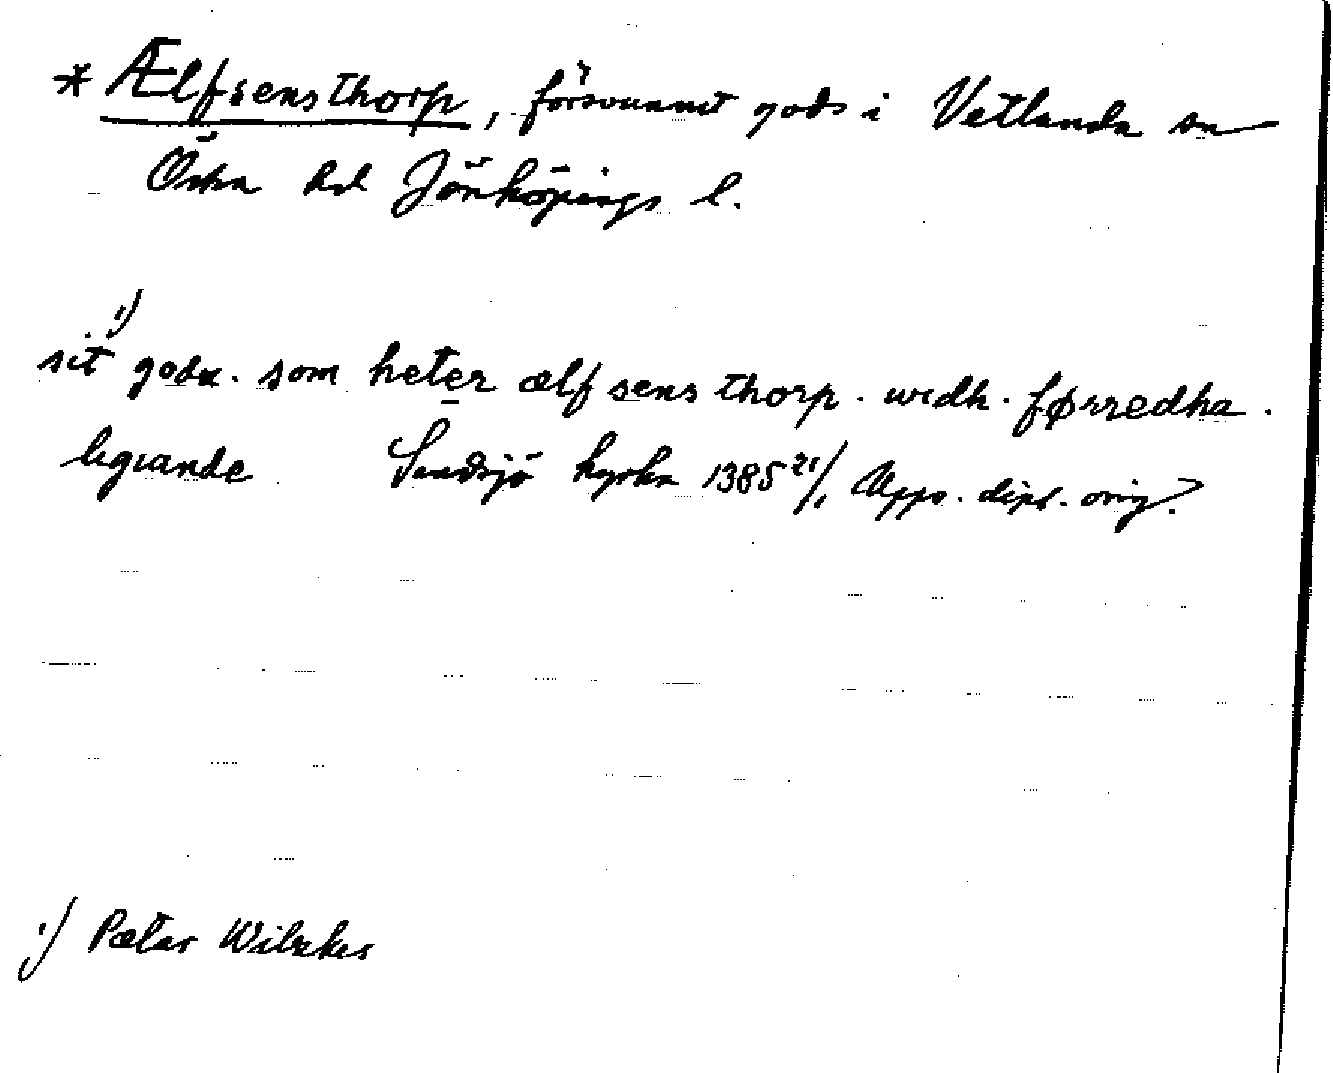 * Ælfsens thorp, försvunnet gods i Vetlanda sn
Östra hd Jönköpings l.
sit 1) godz. som heter ælfsens thorp. widh. førredha.
ligiande Sandsjö kyrka 1385 21/1 Upps. dipl. orig.
1) Pætar Wilzkes